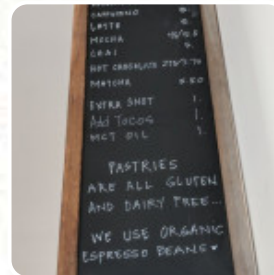 CAPPUCCINO
LATTE
MOCHA
CHAI
HOT CHOCOLATE
MATCHA 5.50
EXTRA SHOT 1.
Add TOCOS 1.
MCT OIL 1.
PASTRIES
ARE ALL GLUTEN
AND DAIRY FREE...
WE USE ORGANIC
ESPRESSO BEANS